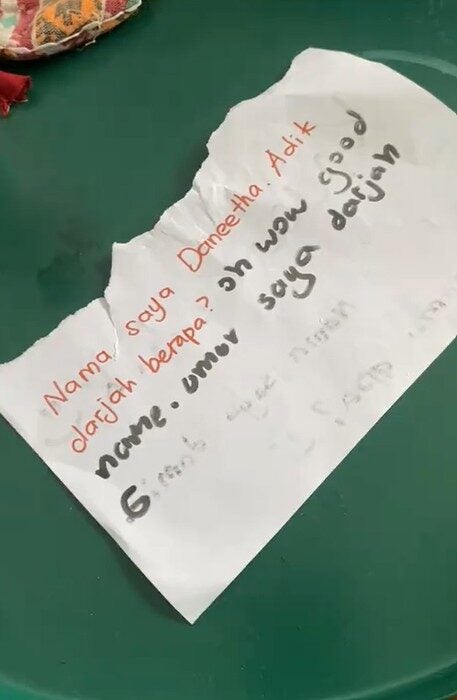 Nama saya Daneetha. Adik
darjah berapa? oh wow good
name. umur saya darjah
6